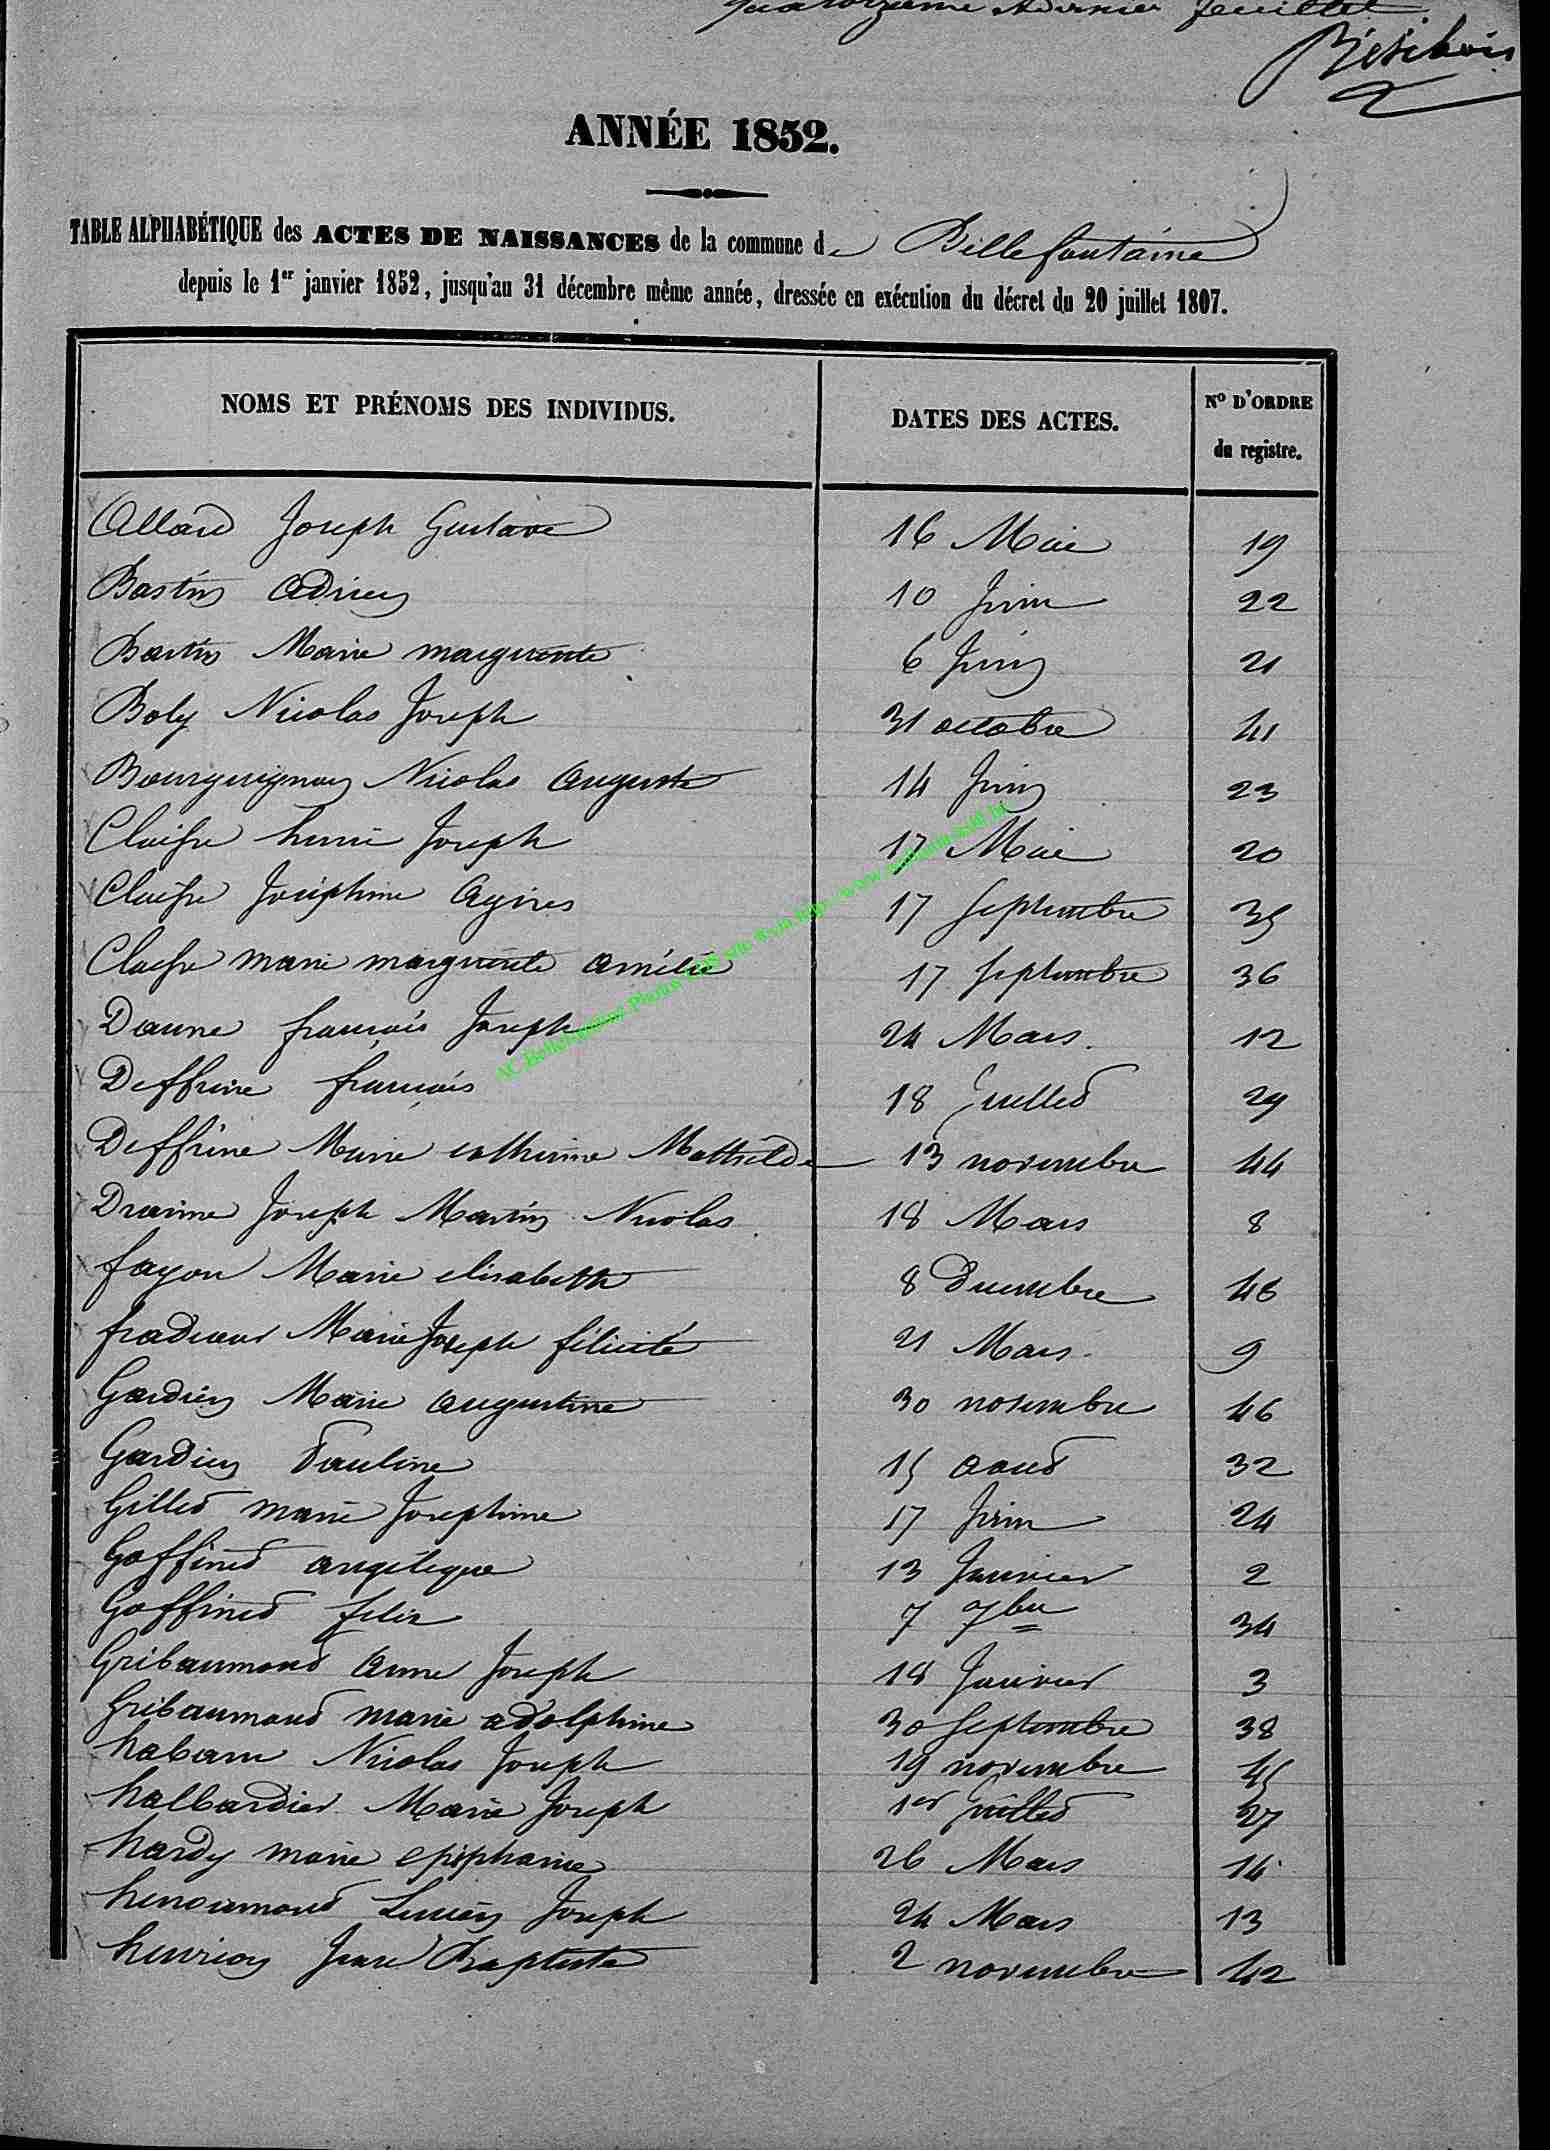 quatorzième et dernier feuillet
ANNÉE 1852.
TABLE ALPHABÉTIQUE des ACTES DE NAISSANCES de la commune de Bellefontaine
depuis le 1er janvier 1852, jusqu'au 31 décembre même année, dressée en exécution du décret du 20 juillet 1807.
NOMS ET PRÉNOMS DES INDIVIDUS. DATES DES ACTES. No D'ORDRE
du registre.
Allard Joseph Gustave 16 Mai 19
Bastin Adrien 10 Juin 22
Bastin Marie marguerite 6 Juin 21
Boly Nicolas Joseph 31 octobre 41
Bourguignon Nicolas Auguste 14 Juin 23
Claisse henri Joseph 17 Mai 20
Claisse Joséphine Agnes 17 Septembre 35
Claisse marie marguerite amélie 17 Septembre 36
Daune françois Joseph 24 Mars. 12
Deffrène françois 18 Juillet 29
Deffrène Marie catherine Mathilde 13 novembre 44
Joseph Martin Nicolas 18 Mars 8
fayon Marie elisabeth 8 Decembre 48
Marie Joseph félicité 21 Mars. 9
Gardien Marie augustine 30 novembre 46
Gardien Pauline 15 aout 32
Gillet marie Josephine 17 Juin 24
Goffinet angélique 13 Janvier 2
Goffinet felix 7 7bre 34
Gribaumont Anne Joseph 18 Janvier 3
Gribaumont marie adolphine 30 Septembre 38
habaru Nicolas Joseph 19 novembre 45
halbardier Marie Joseph 1er Juillet 27
hardy marie epiphanie 26 Mars 14
henoumont Lucien Joseph 24 Mars 13
henrion Jean Baptiste 2 novembre 42